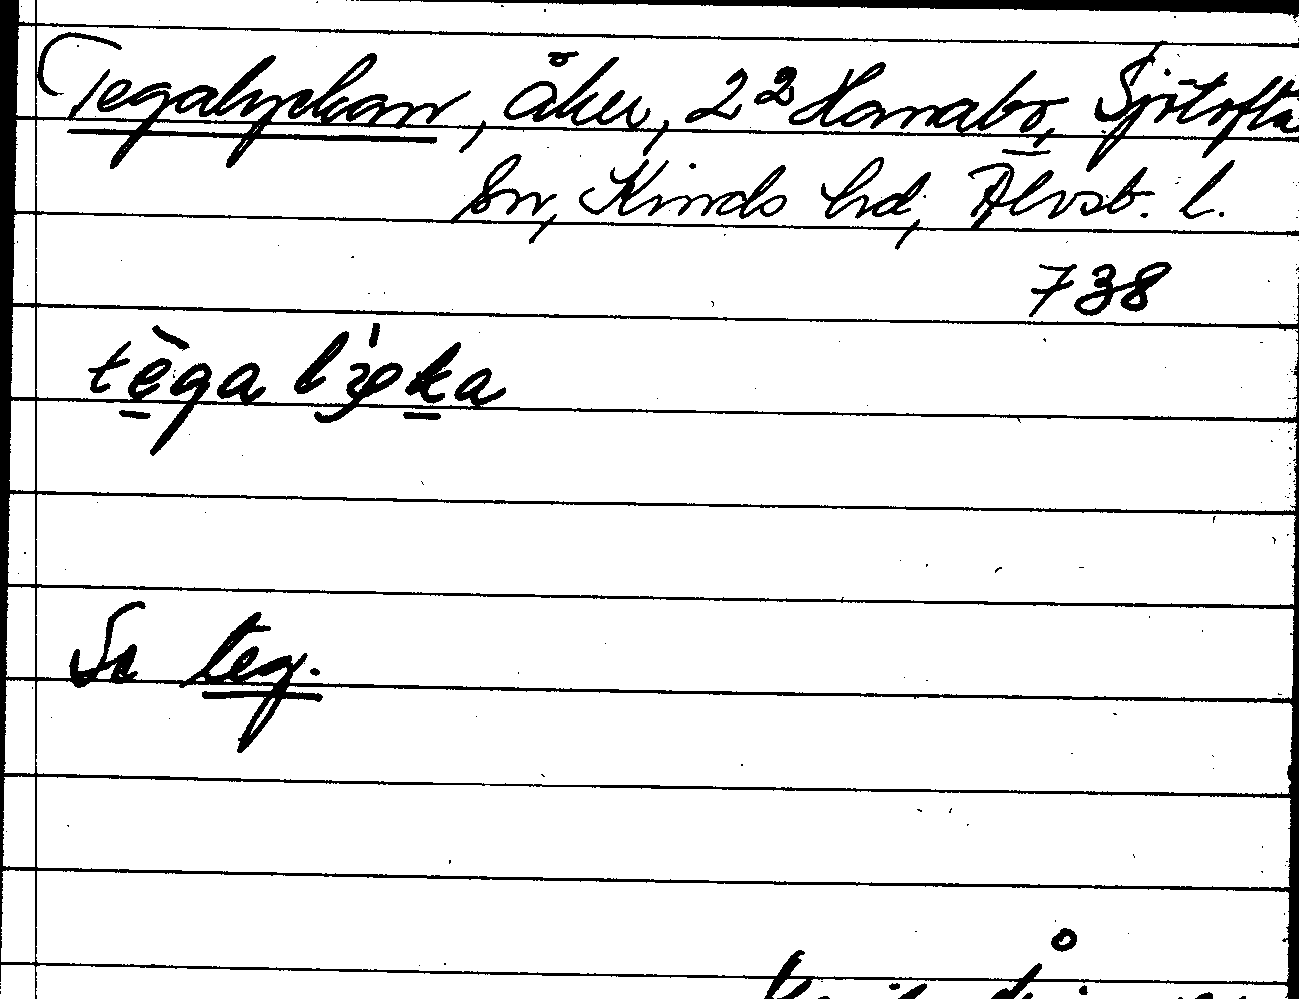 Tegalyckan, åker, 2² Hornabo, Sjötofta
sn, Kinds hd, Älvsb. l.
738
Se teg.